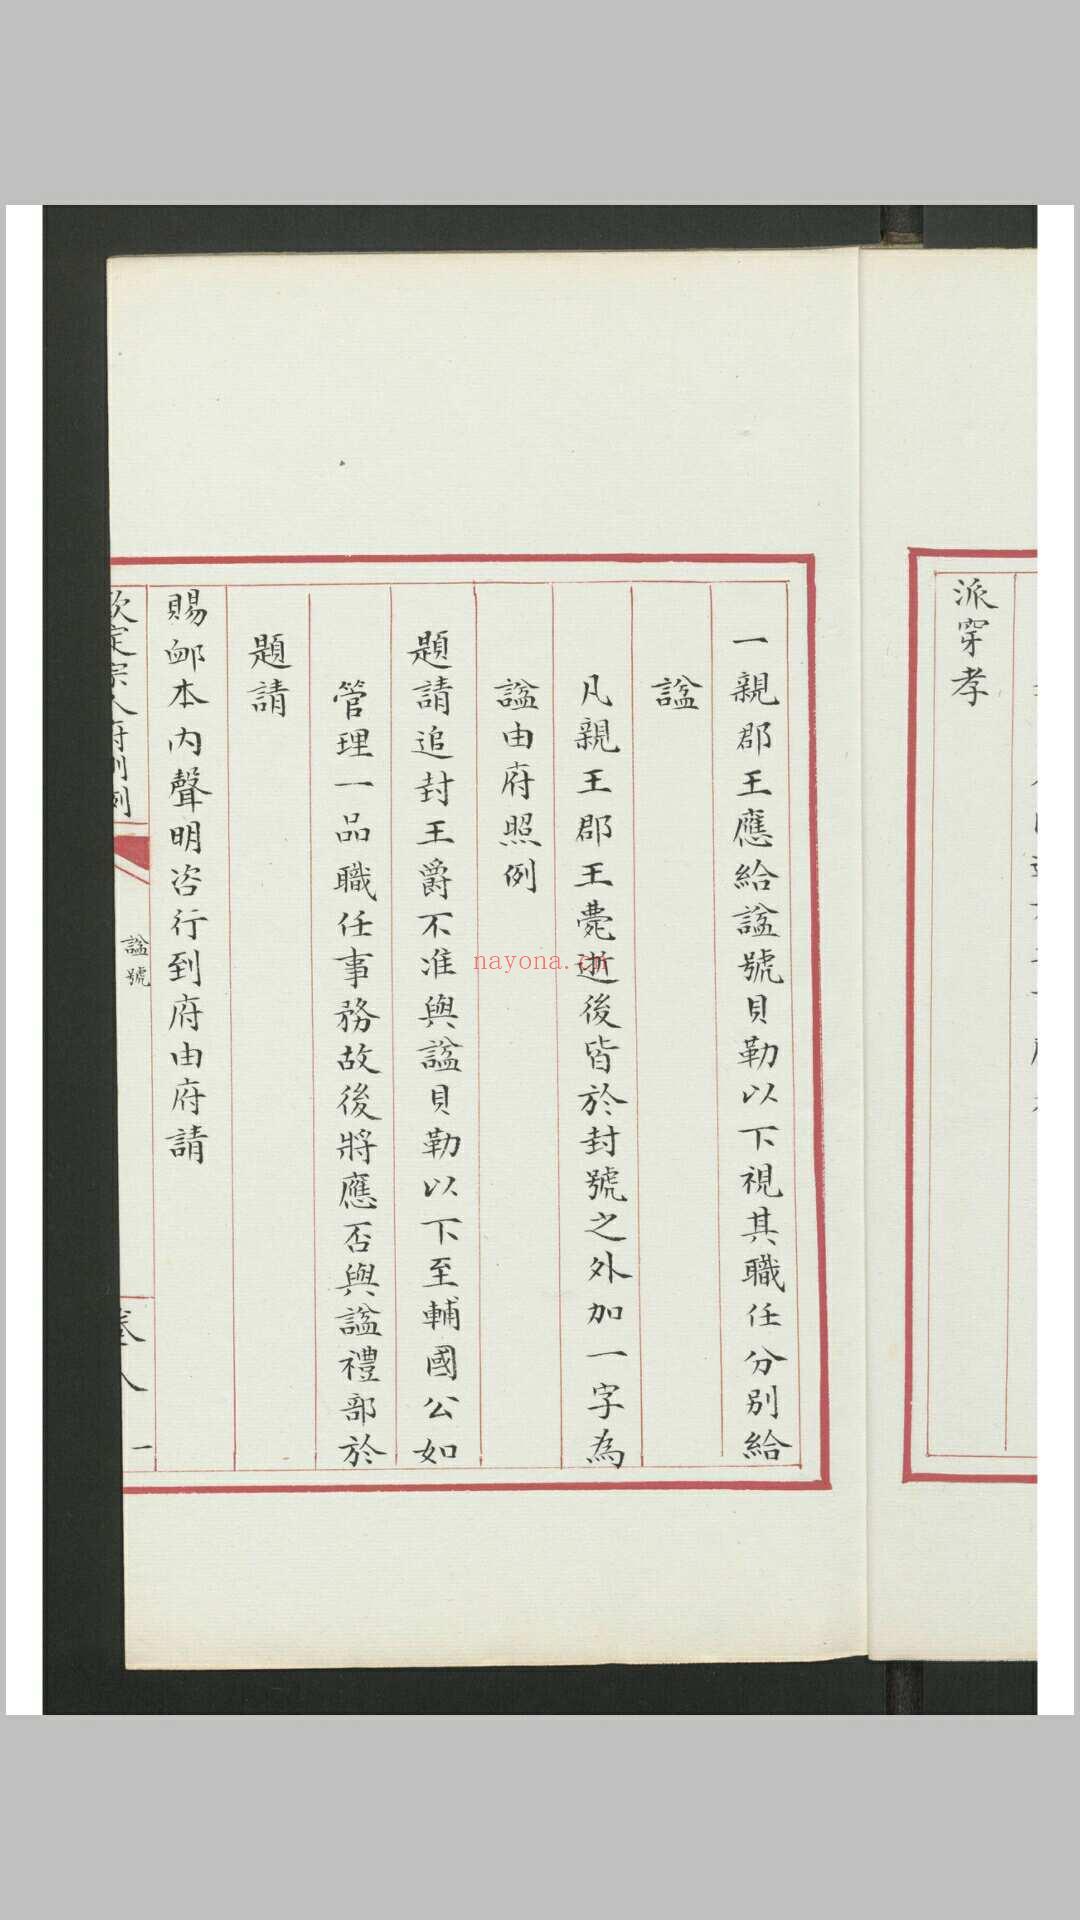 派穿孝
一親郡王應給諡號貝勒以下視其職任分別給
諡
凡親王郡王薨逝後皆於封號之外加一字為
諡由府照例
題請追封王爵不准與諡貝勒以下至輔國公如
管理一品職任事務故後將應否與諡禮部於
題請
賜卹本內聲明咨行到府由府請
欽定宗人府則例
諡號
卷八
一
nayona.cn